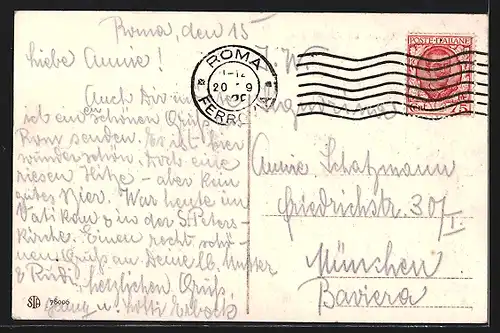 Roma, den 15
Liebe Annie!
Auch Dir
ich ein schönen Gruß
Rom senden. Es ist hier
wunderschön. Doch eine
riesen Hitze – aber kein
gutes Bier. War heute im
Vatikan & in der S. Peters-
kirche. Einen recht schö-
nen Gruß an Deine lb. Mutter
& Rudi, herzlichen Gruß
Georg u. Lotti
STA 78006
ROMA
20 9
FERROVIA
POSTE ITALIANE
Annie Schatzmann
Friedrichstr. 30/I
München
Baviera